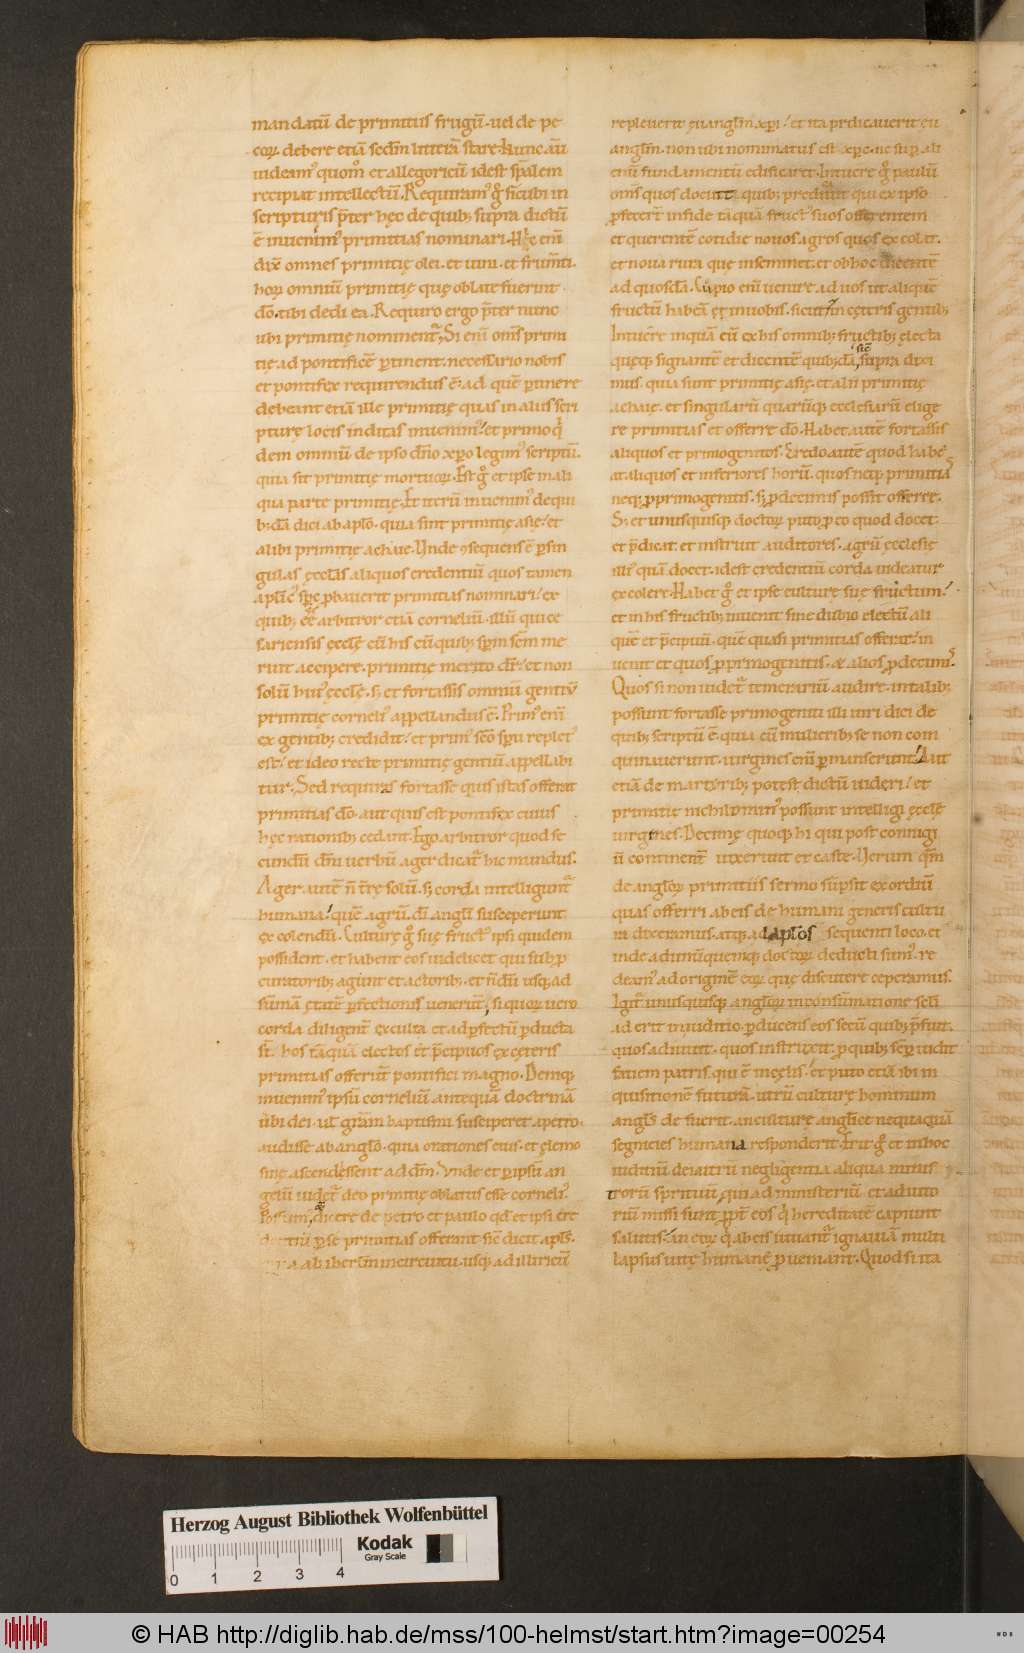 mandatū de primitiis frugū. uel de pe
coꝝ debere etiā scđm litterā stare. Nunc aū
uideam᷒ quom̊ et allegoricū idest spālem
recipiat intellectū. Requiram᷒ gͦ sicubi in
scripturis p̄ter hęc de quib; supra dictū
ē inuenim᷒ primitias nominari. Hęc enī
dix̄ omnes primitię olei. et uini. et frum̄ti.
hoꝝ omniū primitię quę oblate fuerint
dō. tibi dedi ea. Requiro ergo p̄ter nunc
ubi primitię nominent᷑. Si enī om̄s primi
tię ad pontificē ꝑtinent. necessario nobis
et pontifex requirendus ē. ad quē ꝑtinere
debeant etiā ille primitię quas in aliis scri
pturę locis inditas inuenim᷒. et primo qͥ
dem omniū de ipso dn̄o xp̄o legim᷒ scriptū.
quia sit primitię mortuoꝝ. Est gͦ et ipse in ali
qua parte primitię. Et iterū inuenim᷒ de qui
b;dā dici ab aplō. quia sint primitię asię. et
alibi primitię achaię. Vnde ꝯsequens ē ꝑ sin
gulas ęcclās aliquos credentiū quos tamen
aplīc᷒ sp̄c ꝓbauerit primitias nominari. ex
quib; ēē arbitror etiā corneliū. illū qui ce
sariensis ęcclę cū his cū quib; sp̄m sc̄m me
ruit accipere. primitię merito dr̄. et non
solū hui᷒ ęcclę. s; et fortassis omniū gentiū
primitię corneli᷒ appellandus ē. Prim᷒ enī
ex gentib; credidit. et prim᷒ sc̄o sp̄u replet᷒
est. et ideo recte primitię gentiū appellabi
tur. Sed requiras fortasse quis istas offerat
primitias dō. aut quis est pontifex cuius
hęc rationib; cedant. Ego arbitror quod se
cundū dn̄i uerbū ager dicat᷑ hic mundus.
Ager autē n̄ t̄rę solū. s; corda intelligunt᷑
humana. quē agrū dī angl̄i susceperunt
excolendū. Culturę gͦ suę fruct᷒ ipsi quidem
possident. et habent eos uidelicet qui sub ꝓ
curatorib; agunt et actorib;. et n̄dū usq; ad
sūmā ętatē ꝑfectionis uenerūt, si quoꝝ uero
corda diligent᷑ exculta et ad ꝑfectū ꝑducta
st̄. hos tāquā electos et p̄cipuos ex cęteris
primitias offerūt pontifici magno. Deniq;
inuenim᷒ ipsū corneliū. antequā doctrinā
uerbi dei. ut̄ grām baptismi susciperet. a petro.
audisse ab anglō. quia orationes eius. et ęlemo
sinę ascendessent ad dn̄m. Vnde et ꝑ ipsū an
gelū uidet᷑ deo primitię oblatus esse corneli᷒.
Possum, dicere de petro et paulo qd̄ et ipsi cre
dentiū ꝑ se primitias offerant sic̄ dicit apl̄s.
ab iherlm̄ in circuitu. usq; ad illiricū
repleuerit euangliū xp̄i. et ita predicauerit eu
angliū. non ubi nominatus est xp̄c. ne sup̄ ali
enū fundamentū edificaret. Intuere gͦ paulū
om̄s quos docuit. quib; predicauit qui ex ipso
ꝓfecert̄ in fide tāquā fruct᷒ suos offerentem
et querentē cotidie nouos agros quos excolat.
et noua rura quę inseminet. et ob hoc dicentē
ad quosdā. Cupio enī uenire ad uos ut aliquē
fructū habeā et in uobis. sicut in cęteris gentib;
Intuēre inquā eū ex his omnib; fructib; electa
quęq; signantē et dicentē quib;dā, sic̄ supra dixi
mus. quia sunt primitię asię. et alii primitię
achaię. et singularū quarūq; ecclesiarū elige
re primitias et offerre dō. Habet autē fortassis
aliquos et primogenitos. Credo autē quod habe
at aliquos et inferiores horū. quos neq; primitias
neq; ꝓ primogenitis. s; ꝓ decimis possit offerre.
S; et unusquisq; doctoꝝ puto ꝓ eo quod docet.
et p̄dicat. et instruit auditores. agrū ęcclesię
illi᷒ quā docet. idest credentiū corda uideatur
excolere. Habet gͦ et ipse culturę suę fructum.
et in his fructib; inuenit sine dubio electū ali
quē et p̄cipuū. quē quasi primitias offerat. in
uenit et quos ꝓ primogenitis. & alios ꝓ decimis.
Quos si non uidet᷑ temerariū audire. in talib;
possunt fortasse primogeniti illi uiri dici de
quib; scriptū ē. quia cū mulierib; se non coin
quinauerunt. uirgines enī ꝑmanserunt. Aut
etiā de martirib; potest dictū uideri. et
primitię nichilomin᷒ possunt intelligi ęcclę
uirgines. Decimę quoq; hi qui post coniugi
ū continent᷑ uixerunt et caste. Verum qm̄
de angloꝝ primitiis sermo sūpsit exordiū
quas offerri ab eis de humani generis cultu
ra dixeramus. atq; ad lapsos sequenti loco. et
inde ad unūquemq; doctoꝝ deducti sum᷒. re
deam᷒ ad originē eoꝝ quę discutere ceperamus.
Igit᷑ unusquisq; angloꝝ in consūmatione sclī
aderit in iuditio. ꝓducens eos secū quib; p̄fuit.
quos adiuuit. quos instruxit. ꝓ quib; semꝑ uidit
faciem patris. qui ē in cęlis. et puto etiā ibi in
quisitionē futurā. utrū culturę hominum
anglūs defuerit. an culturę anglicę nequaquā
segnicies humana responderit. Erit gͦ et in hoc
iuditiū dei utrū negligentia aliqua minis
trorū sprituū, qui ad ministeriū et adiuto
riū missi sunt ꝓpt̄ eos qͥ hereditatē capiunt
salutis. an eoꝝ qͥ ab eis iuuant᷑ ignauiā multi
lapsus uitę humanę ꝓueniant. Quod si ita
Herzog August Bibliothek Wolfenbüttel
Kodak
Gray Scale
0 1 2 3 4
© HAB http://diglib.hab.de/mss/100-helmst/start.htm?image=00254